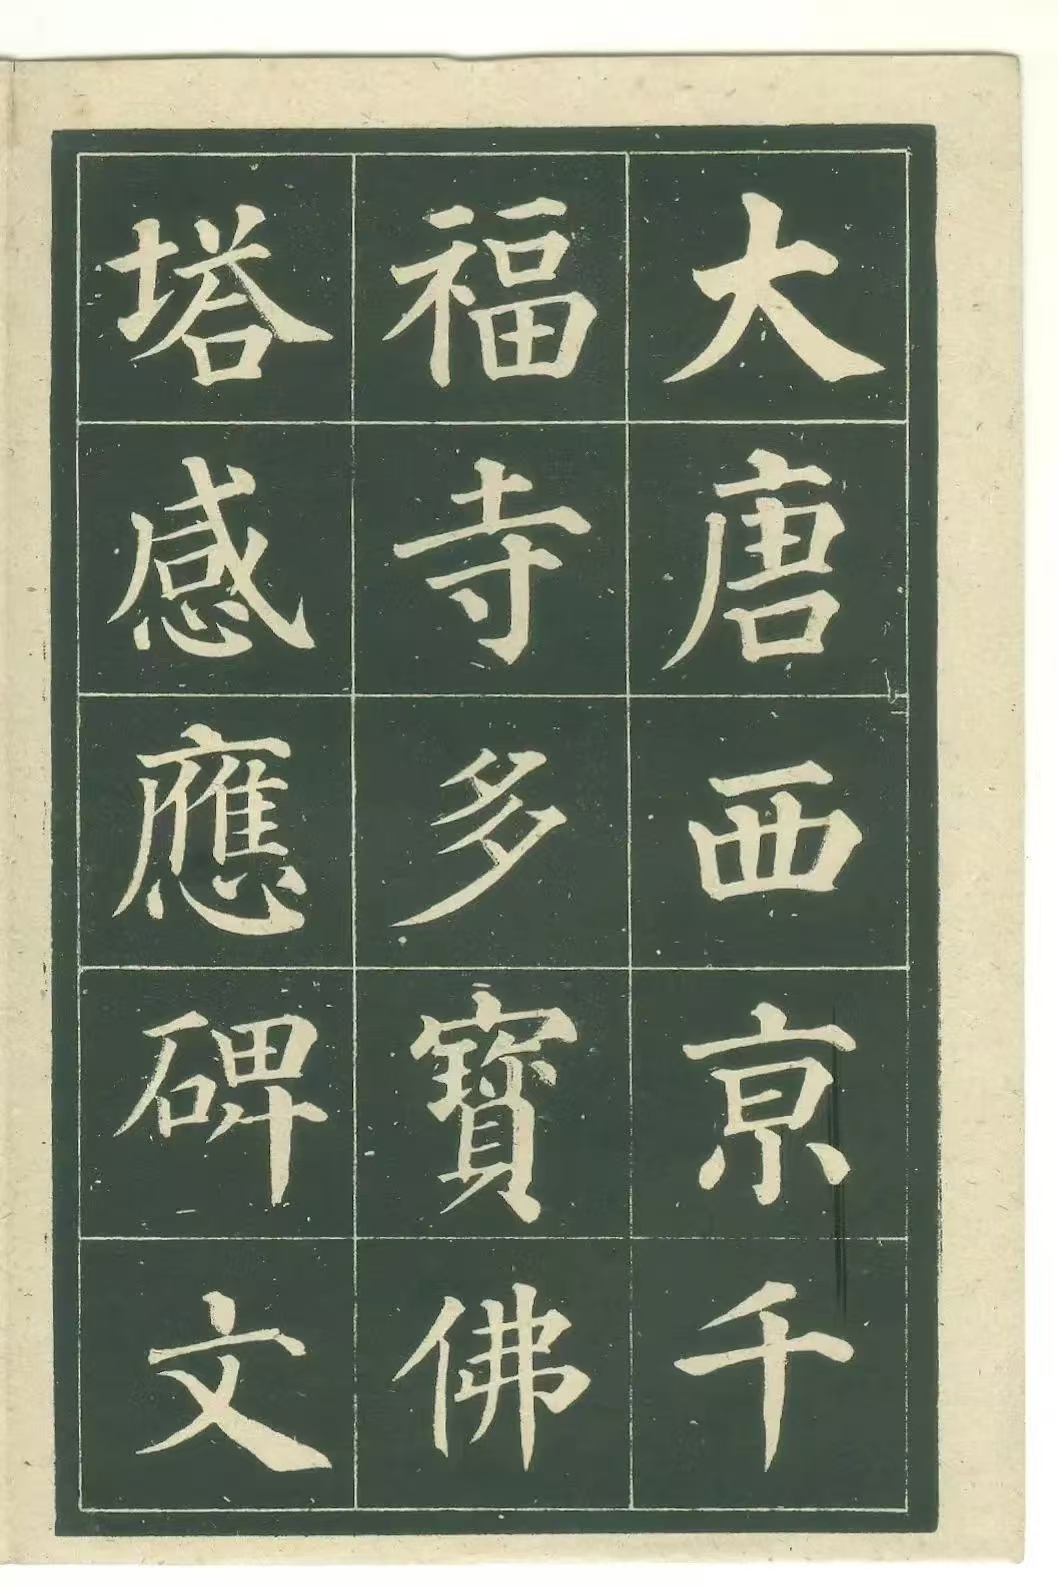 大唐西京千
福寺多寶佛
塔感應碑文